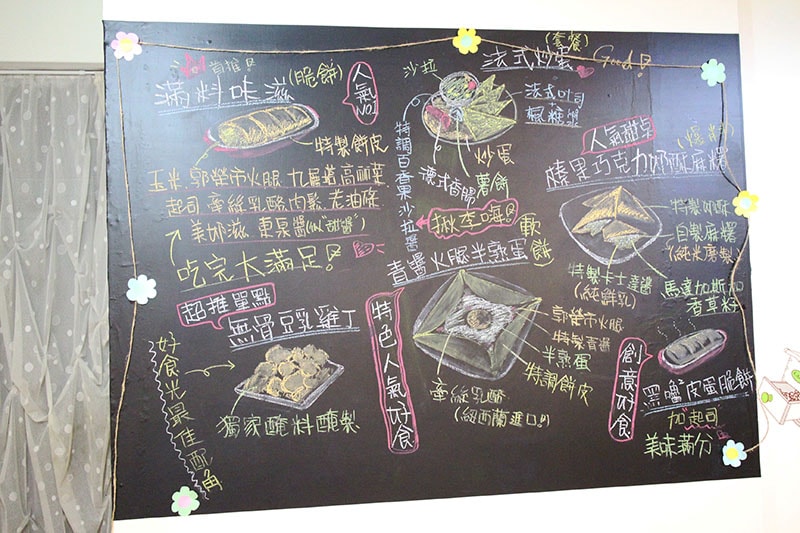 首推
滿料味滋
(脆餅)
人氣NO.1
特製餅皮
玉米 郭榮市火腿 九層塔 高麗菜
起司 牽絲乳酪 肉鬆 老油條
美奶滋 東泉醬(似"甜醬")
吃完大滿足!
超推單點
無骨豆乳雞丁
獨家醃料醃製
好食光最佳配角
沙拉
(套餐)
法式炒蛋
Good
法式吐司
楓糖漿
炒蛋
薯餅
德式香腸
特調百香果沙拉醬
揪李嗨!
青醬火腿半熟蛋
軟餅
特色人氣好食
郭榮市火腿
特製青醬
半熟蛋
特調餅皮
牽絲乳酪
(紐西蘭進口!!)
人氣甜點
榛果巧克力奶酥麻糬
特製奶酥
自製麻糬
(純米磨製)
特製卡士達醬
(純鮮乳)
馬達加斯加
香草籽
創意好食
黑嚕嚕皮蛋脆餅
加起司
美味滿分